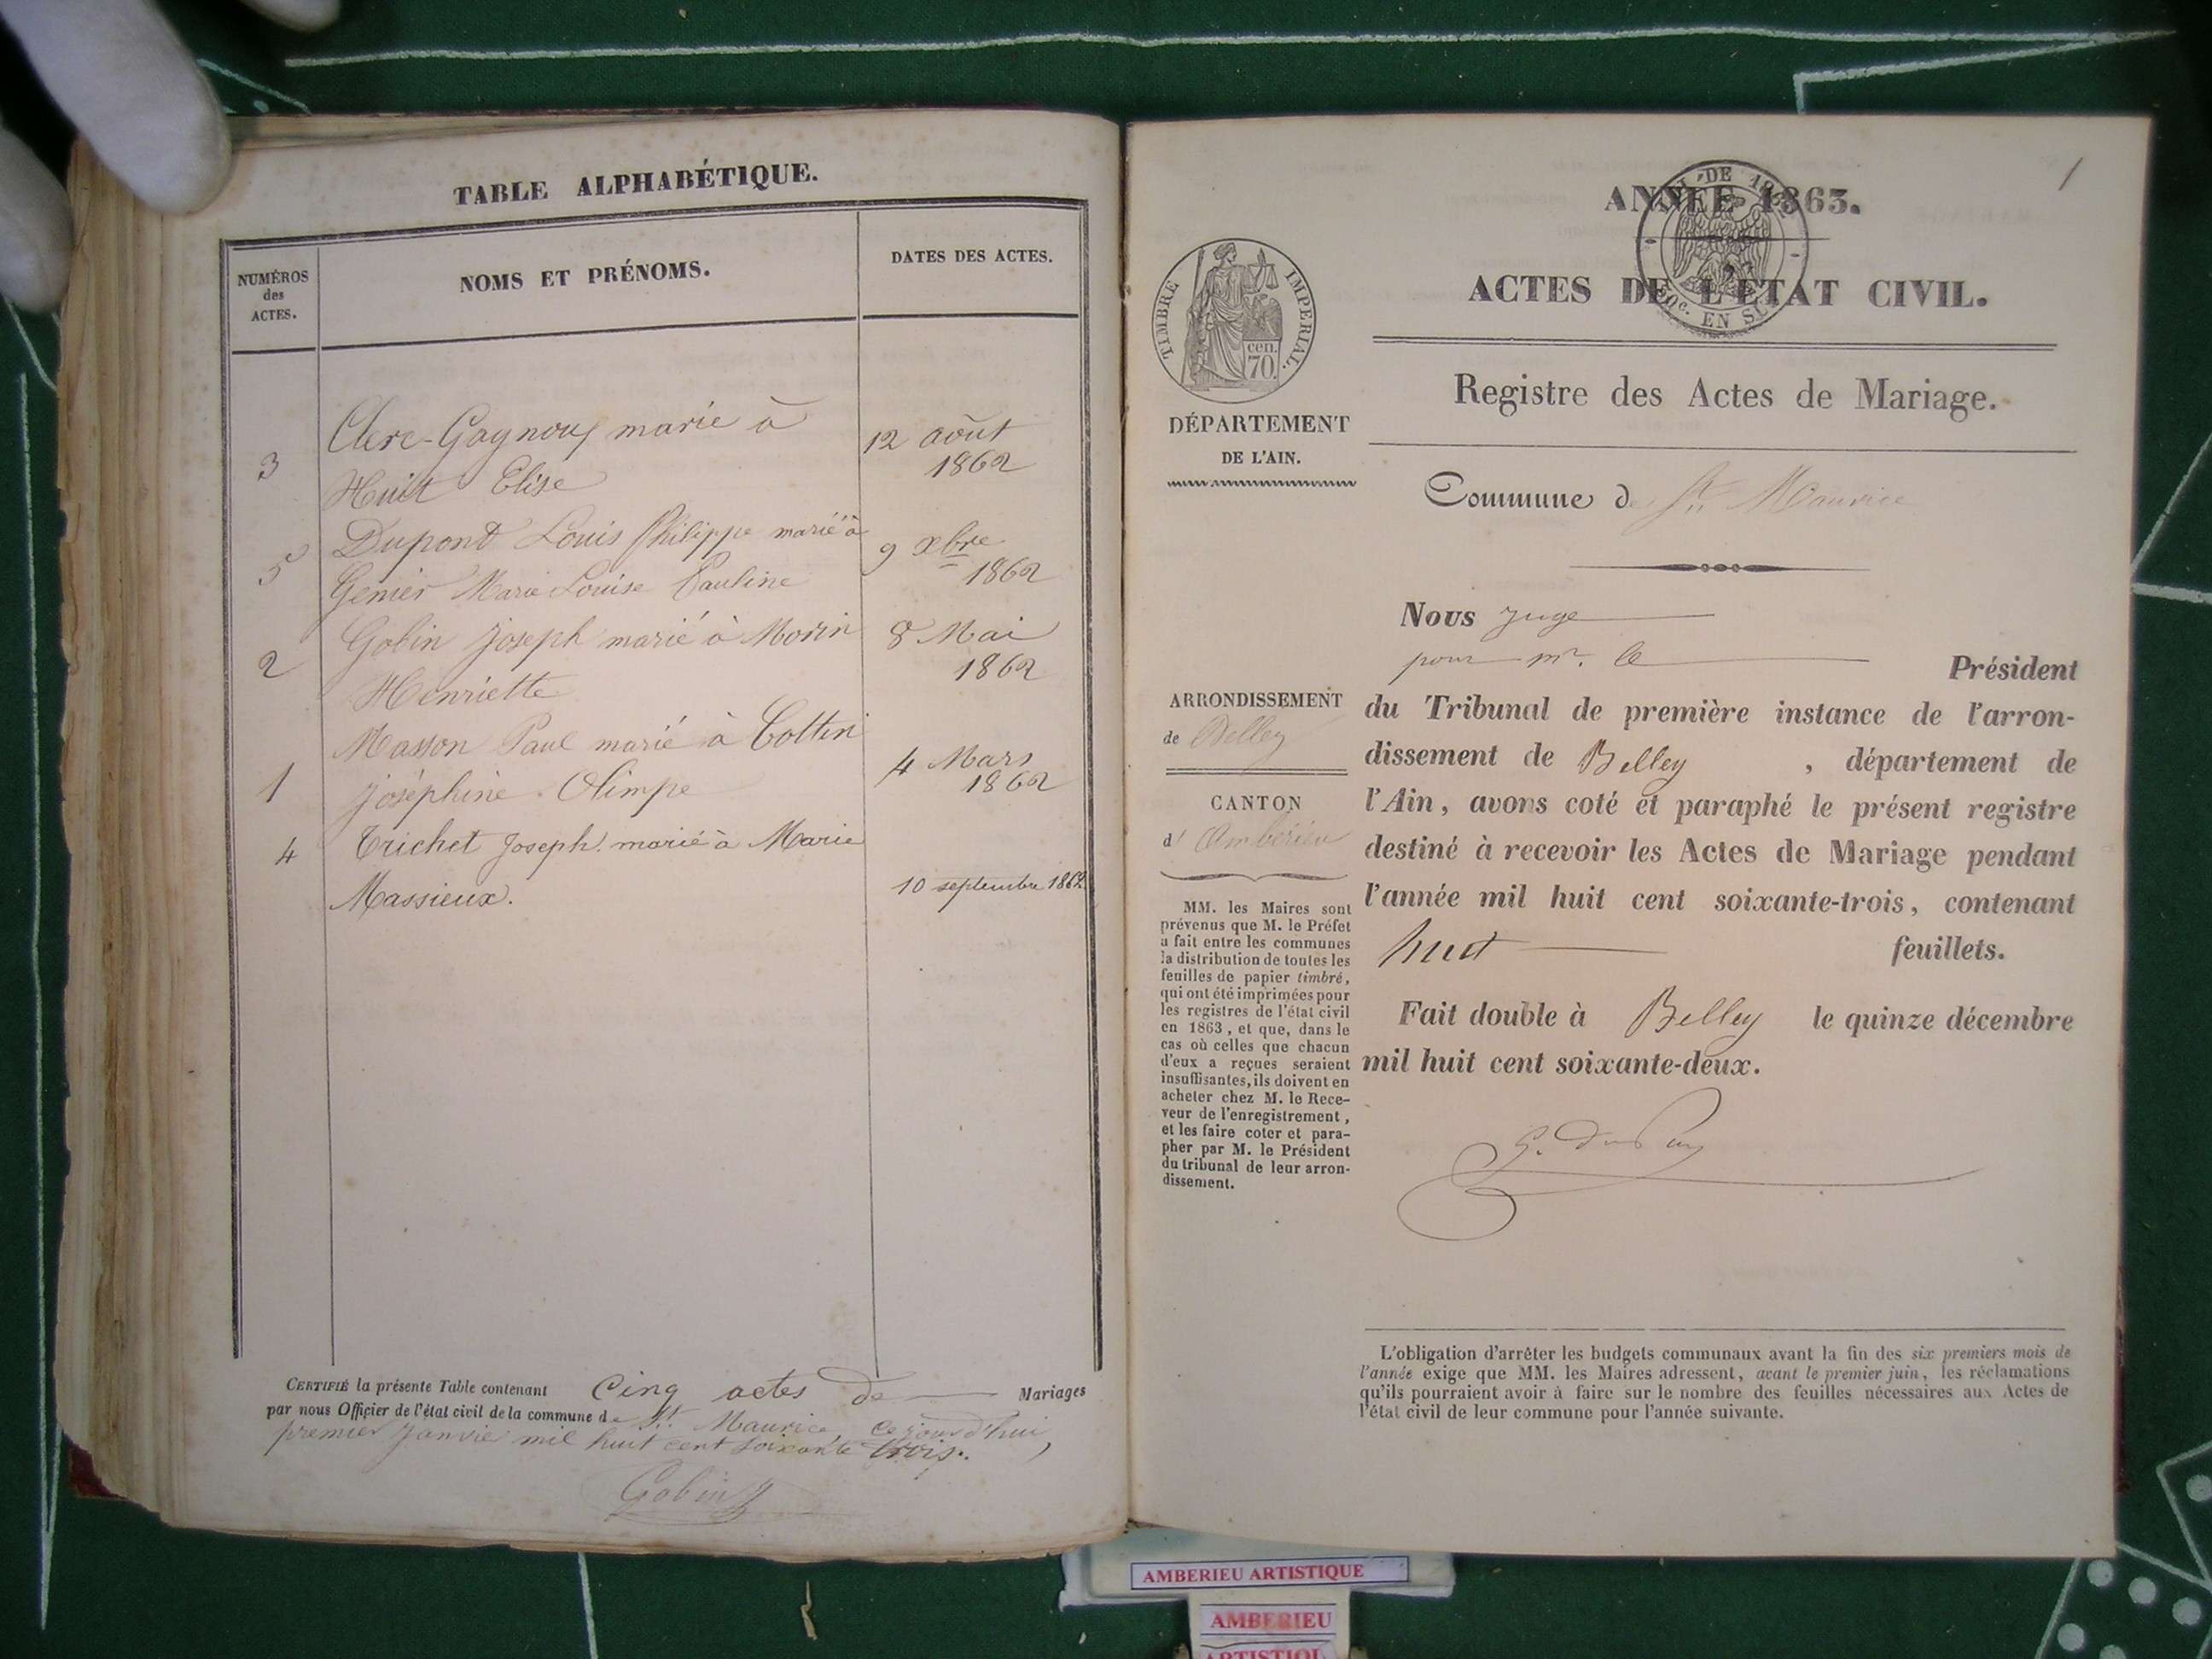 TABLE ALPHABÉTIQUE.
NUMÉROS
des
ACTES.
NOMS ET PRÉNOMS.
DATES DES ACTES.
3
Clerc-Gagnoux marié à
Huit Elise
12 août
1862
5
Dupont Louis Philippe marié à
Genier Marie Louise Pauline
9 xbre
1862
2
Gobin Joseph marié à Morin
Henriette
8 Mai
1862
1
Masson Paul marié à Cottin
Joséphine Olimpe
4 Mars
1862
4
Trichet Joseph marié à Marie
Massieux.
10 septembre 1862
CERTIFIÉ la présente Table contenant Cinq actes de Mariages
par nous Officier de l'état civil de la commune de St Maurice, ce jourd'hui
premier Janvier mil huit cent soixante trois.
Gobin
1
ANNÉE 1863.
ACTES DE L'ÉTAT CIVIL.
50c. EN SUS
TIMBRE IMPERIAL.
cen.
70.
DÉPARTEMENT
DE L'AIN.
Registre des Actes de Mariage.
Commune de St Maurice
ARRONDISSEMENT
de Belley
CANTON
d' Ambérieu
MM. les Maires sont
prévenus que M. le Préfet
a fait entre les communes
la distribution de toutes les
feuilles de papier timbré,
qui ont été imprimées pour
les registres de l'état civil
en 1863, et que, dans le
cas où celles que chacun
d'eux a reçues seraient
insuffisantes, ils doivent en
acheter chez M. le Rece-
veur de l'enregistrement,
et les faire coter et para-
pher par M. le Président
du tribunal de leur arron-
dissement.
Nous Juge
pour mr. le Président
du Tribunal de première instance de l'arron-
dissement de Belley, département de
l'Ain, avons coté et paraphé le présent registre
destiné à recevoir les Actes de Mariage pendant
l'année mil huit cent soixante-trois, contenant
huit feuillets.
Fait double à Belley le quinze décembre
mil huit cent soixante-deux.
L'obligation d'arrêter les budgets communaux avant la fin des six premiers mois de
l'année exige que MM. les Maires adressent, avant le premier juin, les réclamations
qu'ils pourraient avoir à faire sur le nombre des feuilles nécessaires aux Actes de
l'état civil de leur commune pour l'année suivante.
AMBERIEU ARTISTIQUE
AMBERIEU
ARTISTIQUE